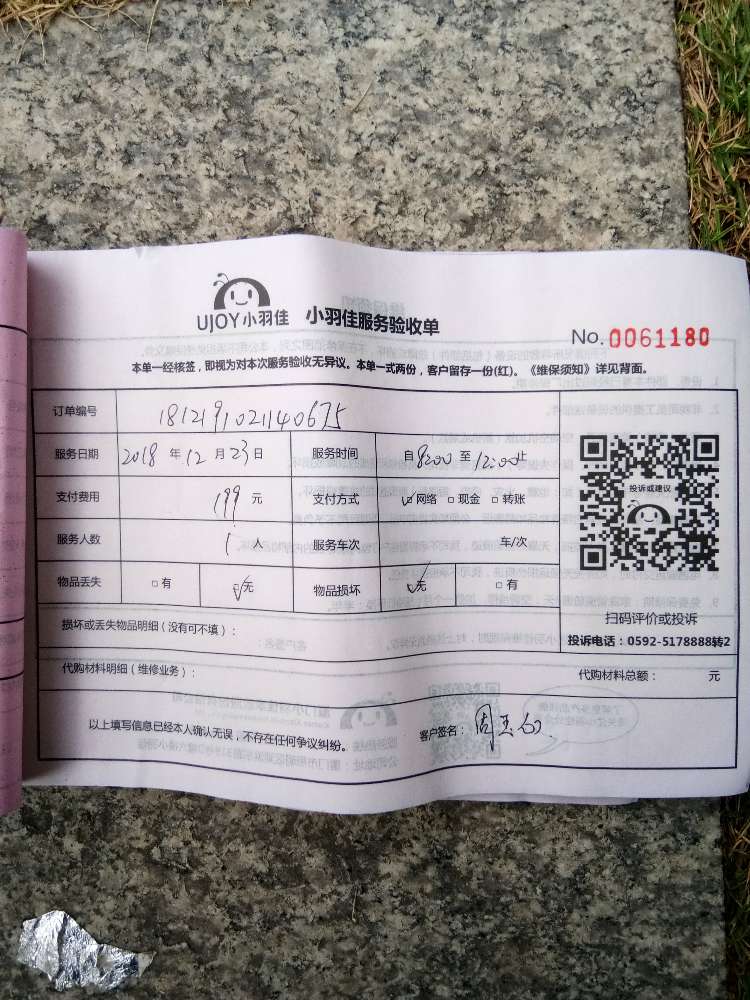 UJOY小羽佳 小羽佳服务验收单
No. 0061180
本单一经核签，即视为对本次服务验收无异议。本单一式两份，客户留存一份(红)。《维保须知》详见背面。
订单编号 1812191021140675
服务日期 2018 年 12 月 23 日 服务时间 自 8:00 至 12:00 止
支付费用 199 元 支付方式 ☑网络 □现金 □转账
服务人数 1 人 服务车次 车/次
物品丢失 □有 ☑无 物品损坏 ☑无 □有
投诉或建议
扫码评价或投诉
投诉电话：0592-5178888转2
损坏或丢失物品明细（没有可不填）：
代购材料明细（维修业务）： 代购材料总额： 元
以上填写信息已经本人确认无误，不存在任何争议纠纷。 客户签名：周玉